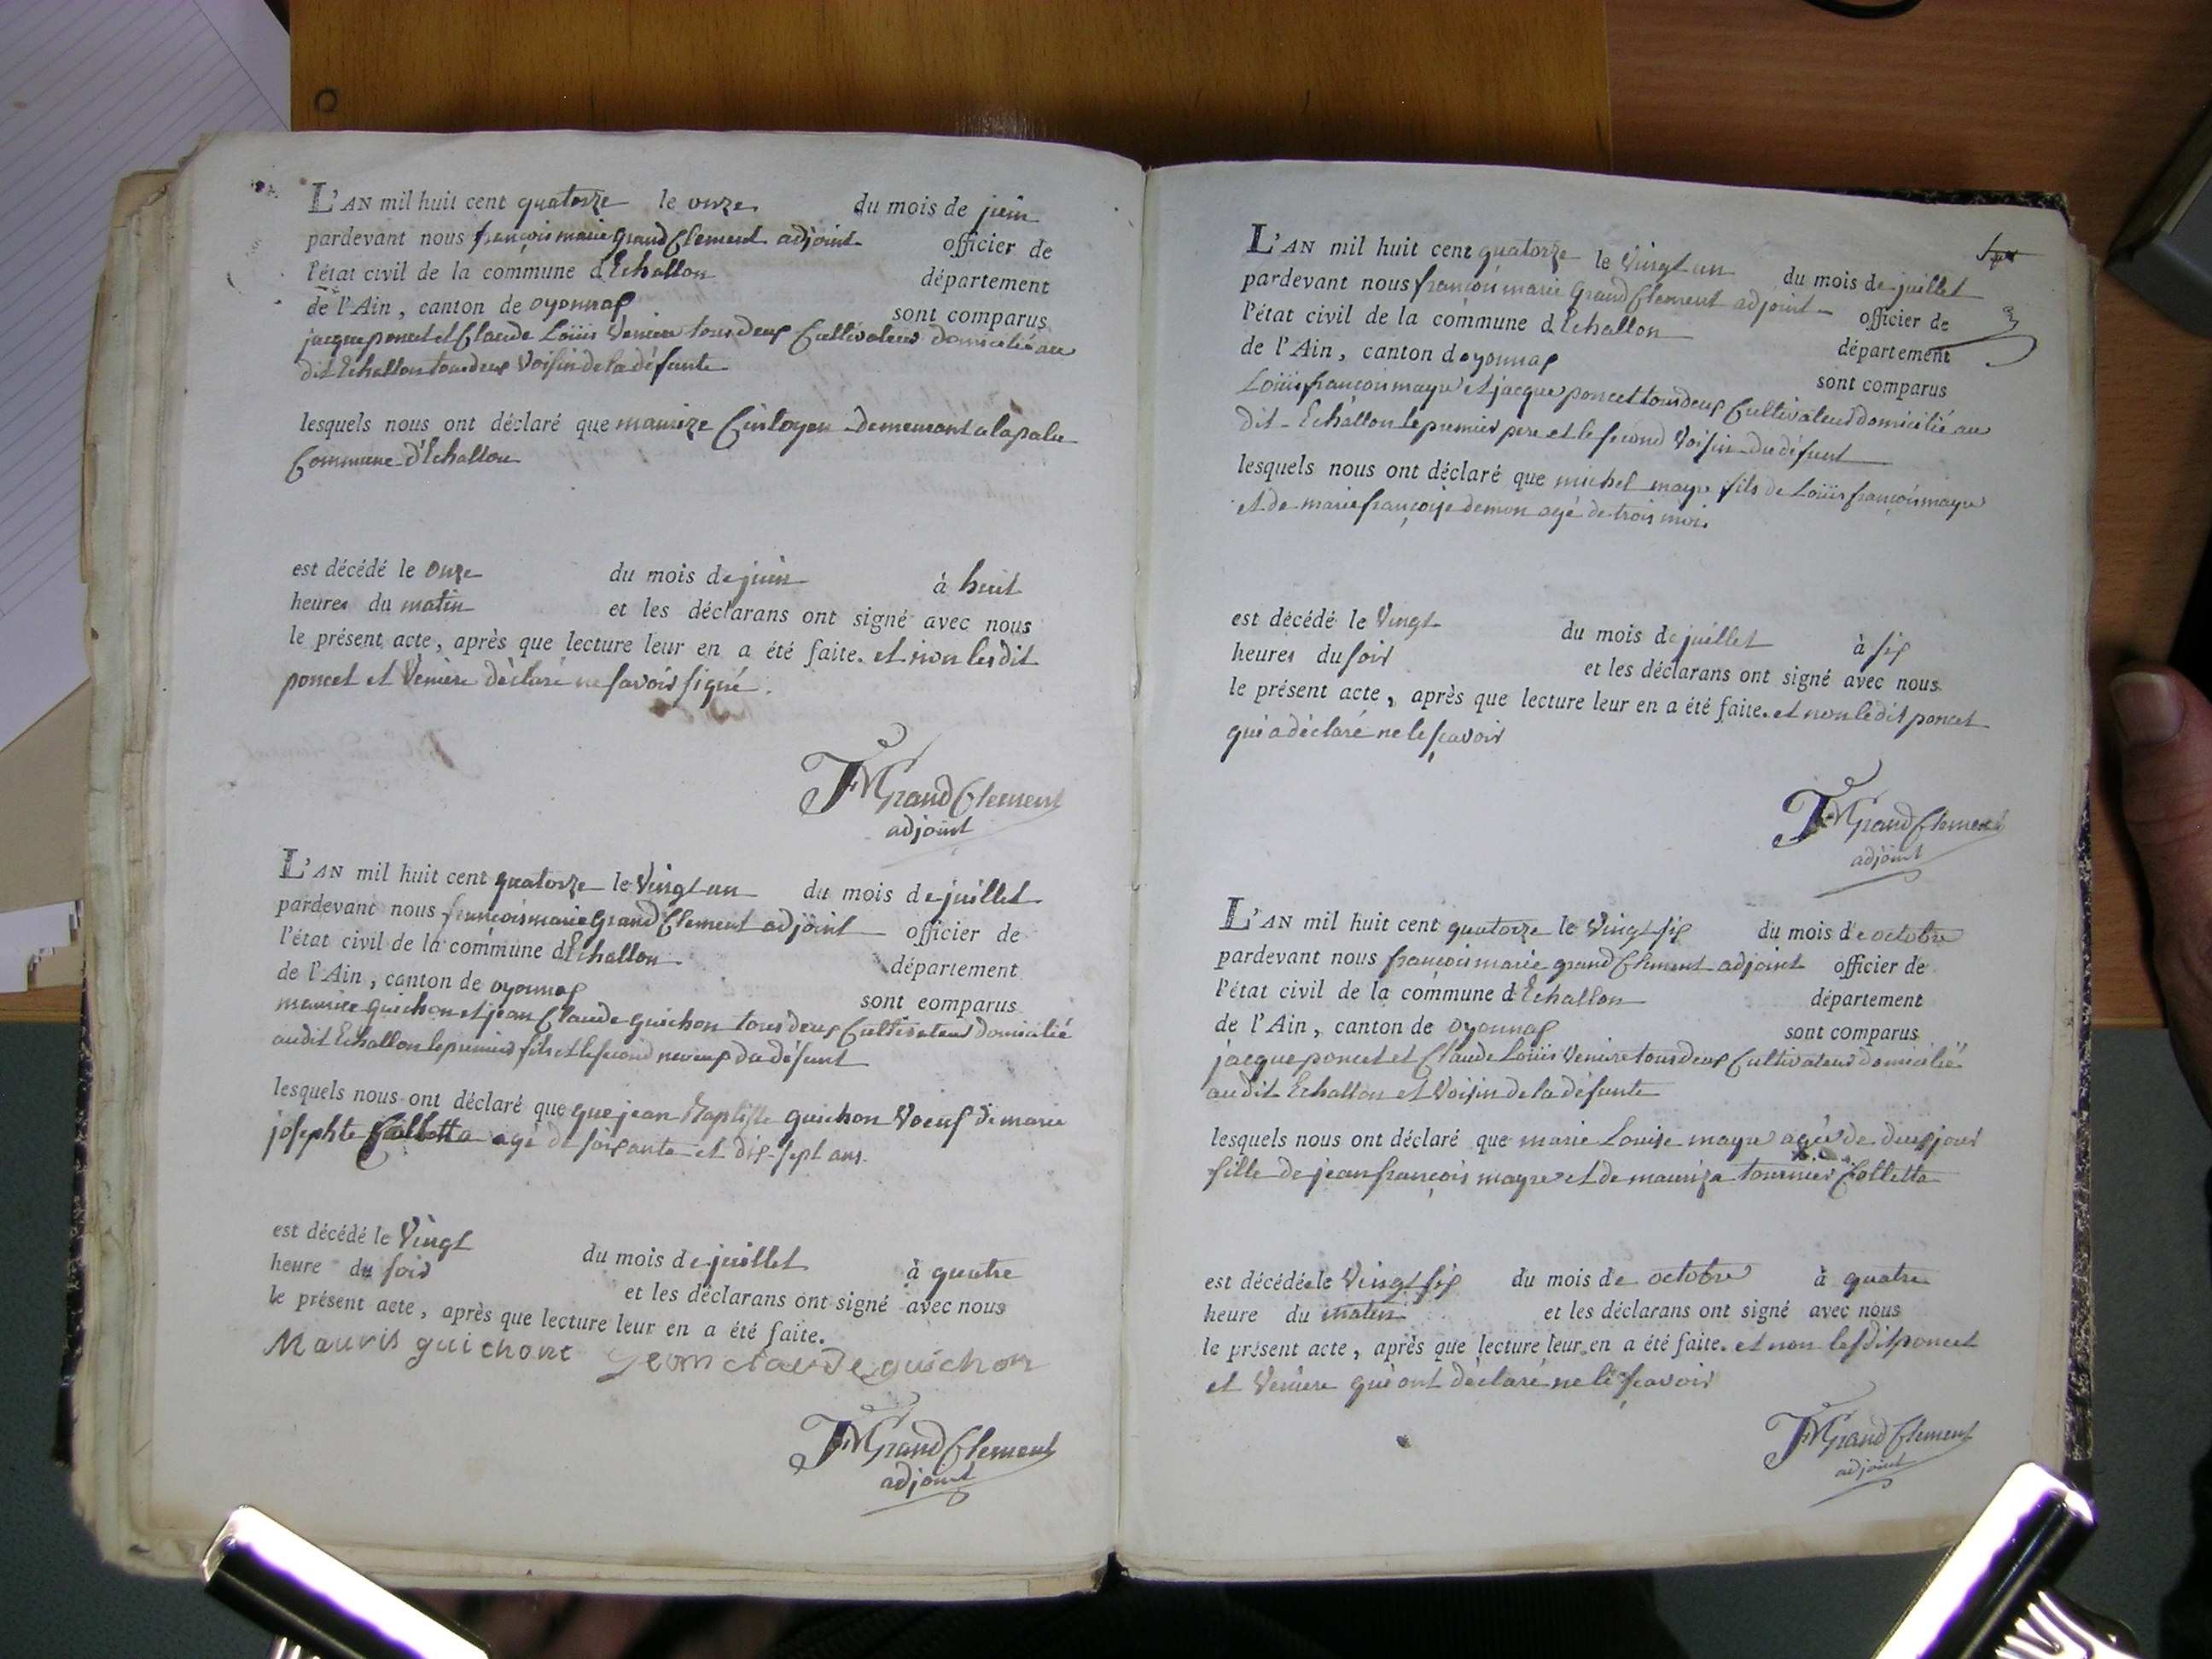 L'AN mil huit cent quatorze le onze du mois de juin
pardevant nous françois marie grand Clement adjoint officier de
l'état civil de la commune d'Echallon département
de l'Ain, canton de oyonnax sont comparus
jacque poncet et Claude Loüis Veniere tous deux Cultivateur domicilié au
dit Echallon tous deux Voisin de la défunte
lesquels nous ont déclaré que maurize demeurant a lapalu
Commune d'Echallon
est décédé le onze du mois de juin à huit
heures du matin et les déclarans ont signé avec nous
le présent acte, après que lecture leur en a été faite. et non lesdit
poncet et Veniere déclaré ne savoir signé.
FM Grand Clement
adjoint
L'AN mil huit cent quatorze le Vingt un du mois de juillet
pardevant nous françois marie grand Clement adjoint officier de
l'état civil de la commune d'Echallon département
de l'Ain, canton de oyonnax sont comparus
maurice guichon et jean Claude guichon tous deux Cultivateur domicilié
audit Echallon le premier fils et le second neveux du défunt
lesquels nous ont déclaré que que jean Baptiste guichon Voeuf de marie
josephte Colletta agé de soixante et dix-sept ans
est décédé le Vingt du mois de juillet à quatre
heure du soir et les déclarans ont signé avec nous
le présent acte, après que lecture leur en a été faite.
Mauris guichont Jeom claude guichon
FM Grand Clement
adjoint
L'AN mil huit cent quatorze le Vingt un du mois de juillet
pardevant nous françois marie Grand Clement adjoint officier de
l'état civil de la commune d'Echallon département
de l'Ain, canton doyonnax sont comparus
Loüis françois mayre et jacque poncet tous deux Cultivateur domicilié au
dit Echallon le premier pere et le second Voisin du défunt
lesquels nous ont déclaré que michel mayre fils de Loüis françois mayre
et de marie françoise demon agé de trois mois
est décédé le Vingt du mois de juillet à six
heures du soir et les déclarans ont signé avec nous
le présent acte, après que lecture leur en a été faite. et non le dit poncet
qui a déclaré ne le sçavoir
FM Grand Clement
adjoint
L'AN mil huit cent quatorze le Vingt six du mois de octobre
pardevant nous françois marie grand Clement adjoint officier de
l'état civil de la commune d'Echallon département
de l'Ain, canton de oyonnax sont comparus
jacque poncet et Claude Loüis Veniere tous deux Cultivateur domicilié
audit Echallon et Voisin de la défunte
lesquels nous ont déclaré que marie Louise mayre agée de deux jour
fille de jean françois mayre et de mauriza tournier Colletta
est décédée le Vingt six du mois de octobre à quatre
heure du matin et les déclarans ont signé avec nous
le présent acte, après que lecture leur en a été faite. et non lesdit poncet
et Veniere qui ont déclaré ne le sçavoir
FM Grand Clement
adjoint